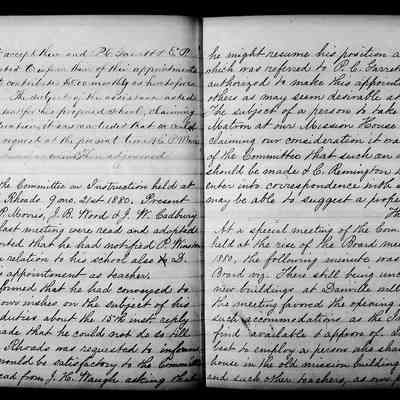 accept them and P.C. Garrett & E.P.
of their appointments
The subject of the assistance asked
for his proposed School, claiming
it was decided that we could
request at the present time
then adjourned
the Committee on Instruction held at
Rhoads 9 mo. 21st 1880. Present
P. Morris, J.B. Wood & J.W. Cadbury
last meeting were read and adopted
that he had notified P. Winston
in relation to his school also D.
is appointment as teacher.
formed that he had conveyed to
our wishes on the subject of his
duties about the 15th inst. reply
made that he could not do so till
Rhoads was requested to inform
would be satisfactory to the Committee
read from J.H. Waugh asking that
he might resume his position a
which was referred to P.C. Garrett
authorized to make his appoint
others as may seem desirable at
The subject of a person to take
Matron at our Mission House
claiming our consideration it was
of the Committee that such an a
should be made & C. Remington
enter into correspondence with
may be able to suggest a prope
The
At a special meeting of the Com
held at the rise of the Board mee
1880, the following minute was
Board viz. There still being unc
new buildings at Danville will
this meeting proved the opening
such accommodations as the In
find available & approves of
sent to employ a person who sha
house in the old mission building
and such other teachers, as our